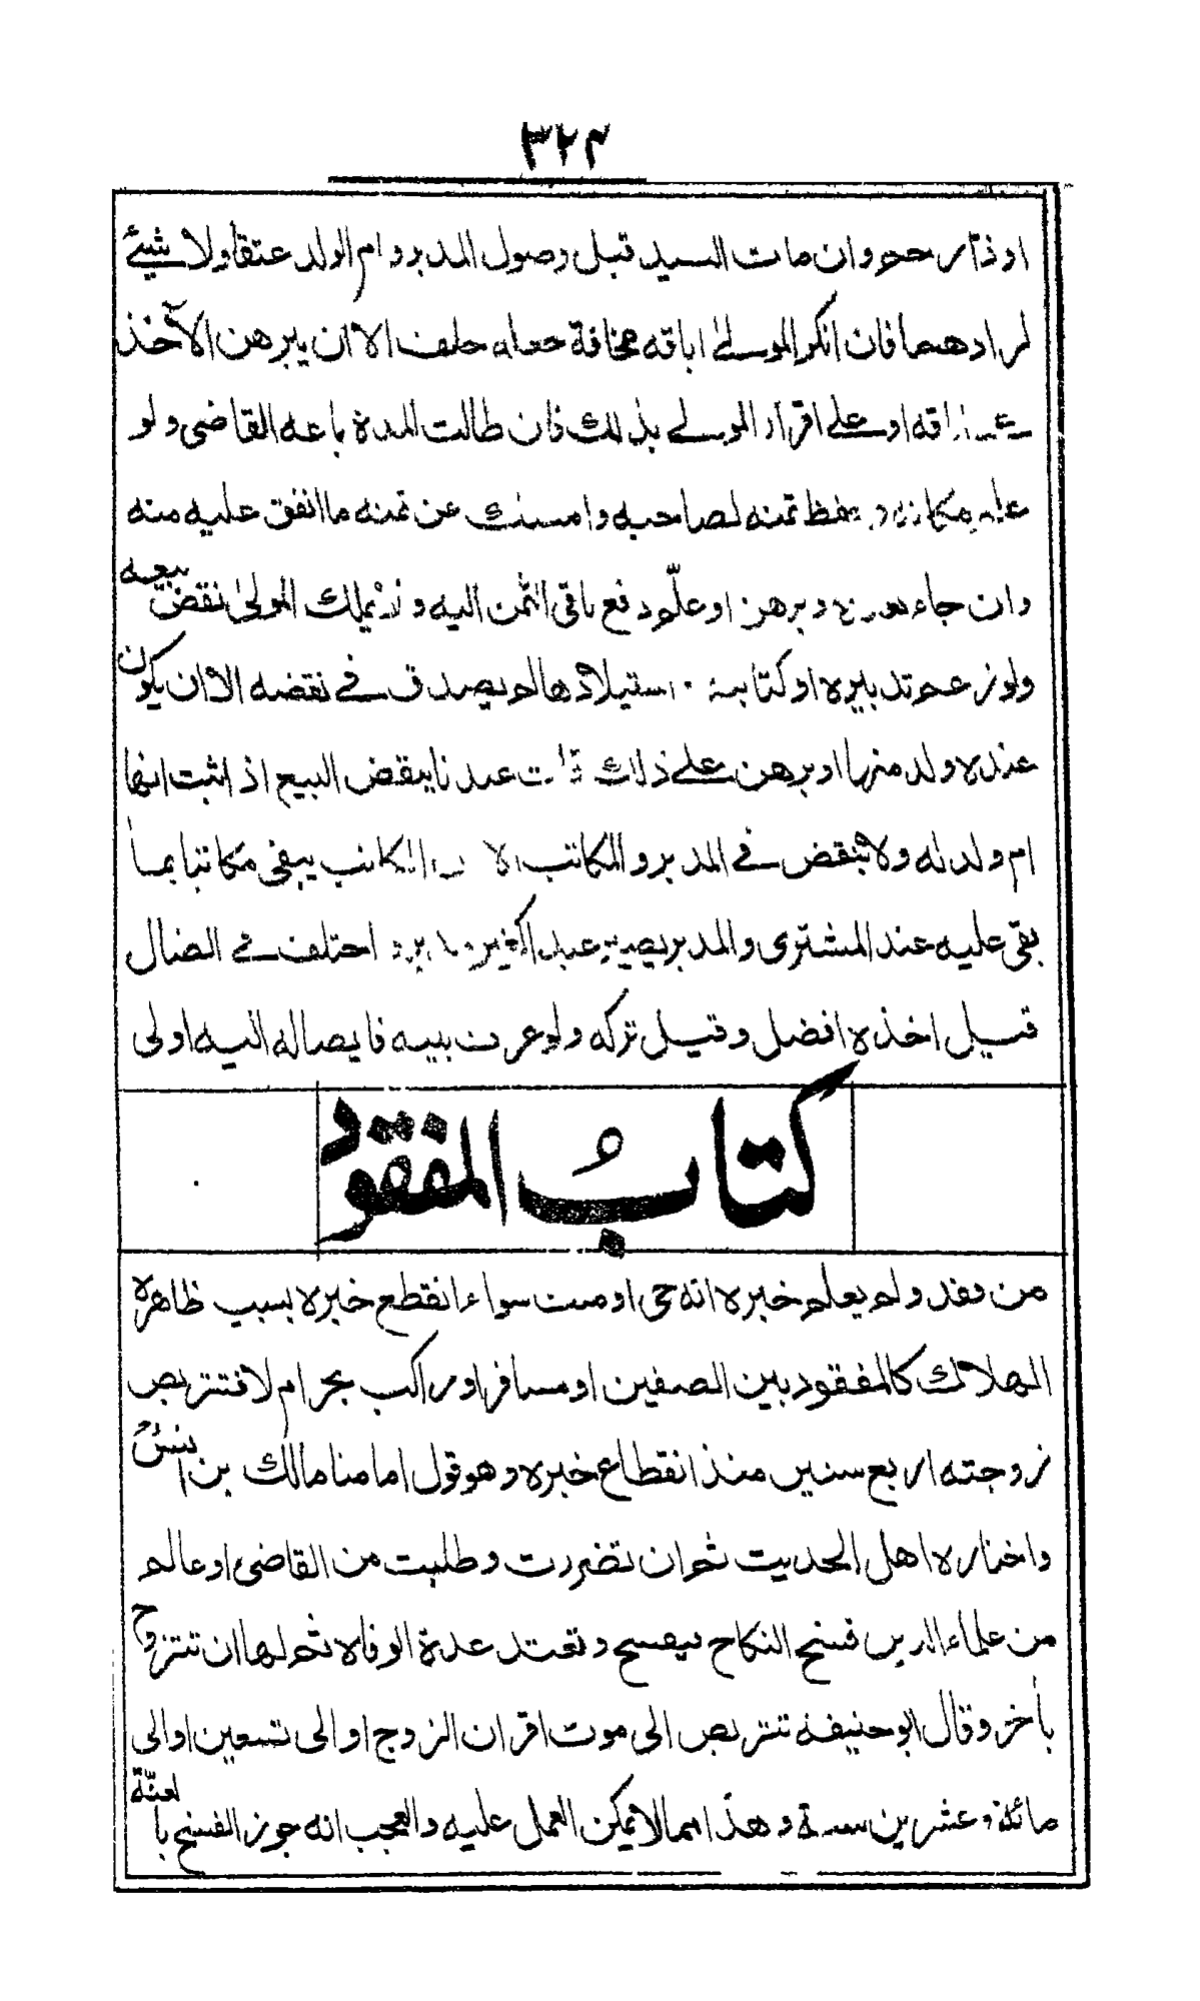 ٣٢٤
او ذا رحم وان مات السيد قبل وصول المدبر وام الولد عتقا ولا شيئ
لرادهما فان انكر المولى اباقه مخافة جعله حلف الا ان يبرهن الآخذ
على اباقه او على اقرار المولى بذلك فان طالت المدة باعه القاضى ولو
علم مكانه و يحفظ ثمنه لصاحبه وامسك عن ثمنه ما انفق عليه منه
وان جاء بعده و برهن او علم دفع باقى الثمن اليه و لا يملك المولى نقض بيعه
ولو زعم تدبيره او كتابته استيلادها لم يصدق فى نقضه الا ان يكون
عنده ولد منها او برهن على ذلك عندنا ينقض البيع اذ اثبت انها
ام ولد له ولا ينقض فى المدبر والمكاتب الا المكاتب يبقى مكاتبا بما
بقى عليه عند المشترى والمدبر يصير عبد الغير اختلف فى الضال
قيل اخذه افضل وقيل تركه ولو عرف بيته فايصاله اليه اولى
كتابُ المفقود
من فقد ولم يعلم خبره انه حى او ميت سواء انقطع خبره بسبب ظاهره
الهلاك كالمفقود بين الصفين او مسافر او راكب بحر ام لا فتتربص
زوجته اربع سنين منذ انقطاع خبره وهو قول امامنا مالك بن انسؓ
واختاره اهل الحديث ثم ان تضررت وطلبت من القاضى او عالم
من علماء الدين فسخ النكاح يفسخ وتعتد عدة الوفاة ثم لها ان تتزوج
بأخر وقال ابو حنيفة تتربص الى موت اقران الزوج او الى تسعين او الى
مائة وعشرين سنة وهذا مما لا يمكن العمل عليه والعجب انه جوز الفسخ بالعنّة